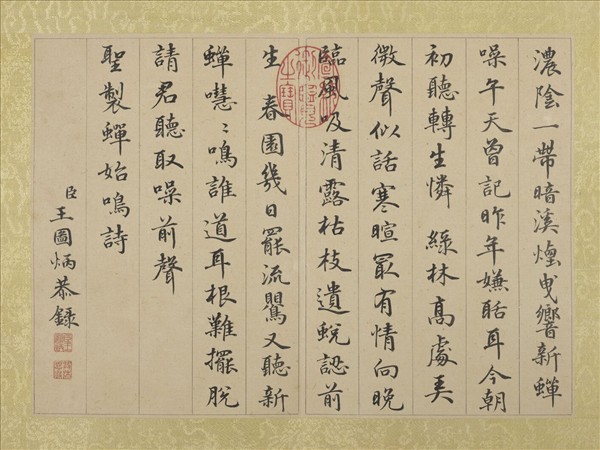 濃陰一帶暗溪煙曳響新蟬
噪午天曾記昨年嫌聒耳今朝
初聽轉生憐 綠林高處奏
微聲似話寒暄冣有情向晚
臨風吸清露枯枝遺蛻認前
生 春園幾日罷流鶯又聽新
蟬嘒〻鳴誰道耳根難擺脫
請君聽取噪前聲
聖製蟬始鳴詩
臣王圖炳恭錄